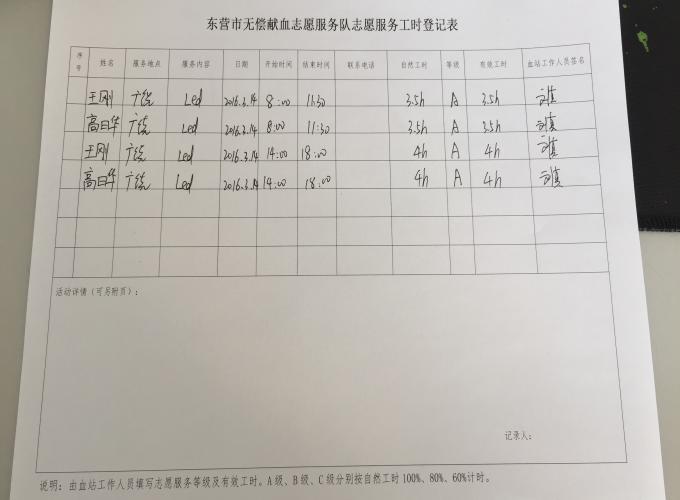 东营市无偿献血志愿服务队志愿服务工时登记表
序号 姓名 服务地点 服务内容 日期 开始时间 结束时间 联系电话 自然工时 等级 有效工时 血站工作人员签名
王刚 广饶 Led 2016.3.14 8:00 11:30 3.5h A 3.5h
高曰华 广饶 Led 2016.3.14 8:00 11:30 3.5h A 3.5h
王刚 广饶 Led 2016.3.14 14:00 18:00 4h A 4h
高曰华 广饶 Led 2016.3.14 14:00 18:00 4h A 4h
活动详情（可另附页）：
记录人：
说明：由血站工作人员填写志愿服务等级及有效工时。A级、B级、C级分别按自然工时100%、80%、60%计时。